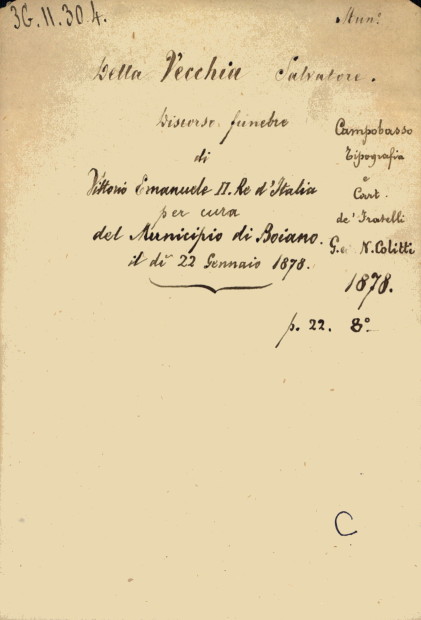 3G.11.30 4.
Mun?
Della Vecchia Salvatore.
Discorso funebre
di
Vittorio Emanuele II. Re d'Italia
per cura
del Municipio di Boiano.
il dì 22 Gennaio 1878.
Campobasso
Tipografia
e
Cart.
de' Fratelli
G. e N. Colitti
1878.
p. 22. 8º
C